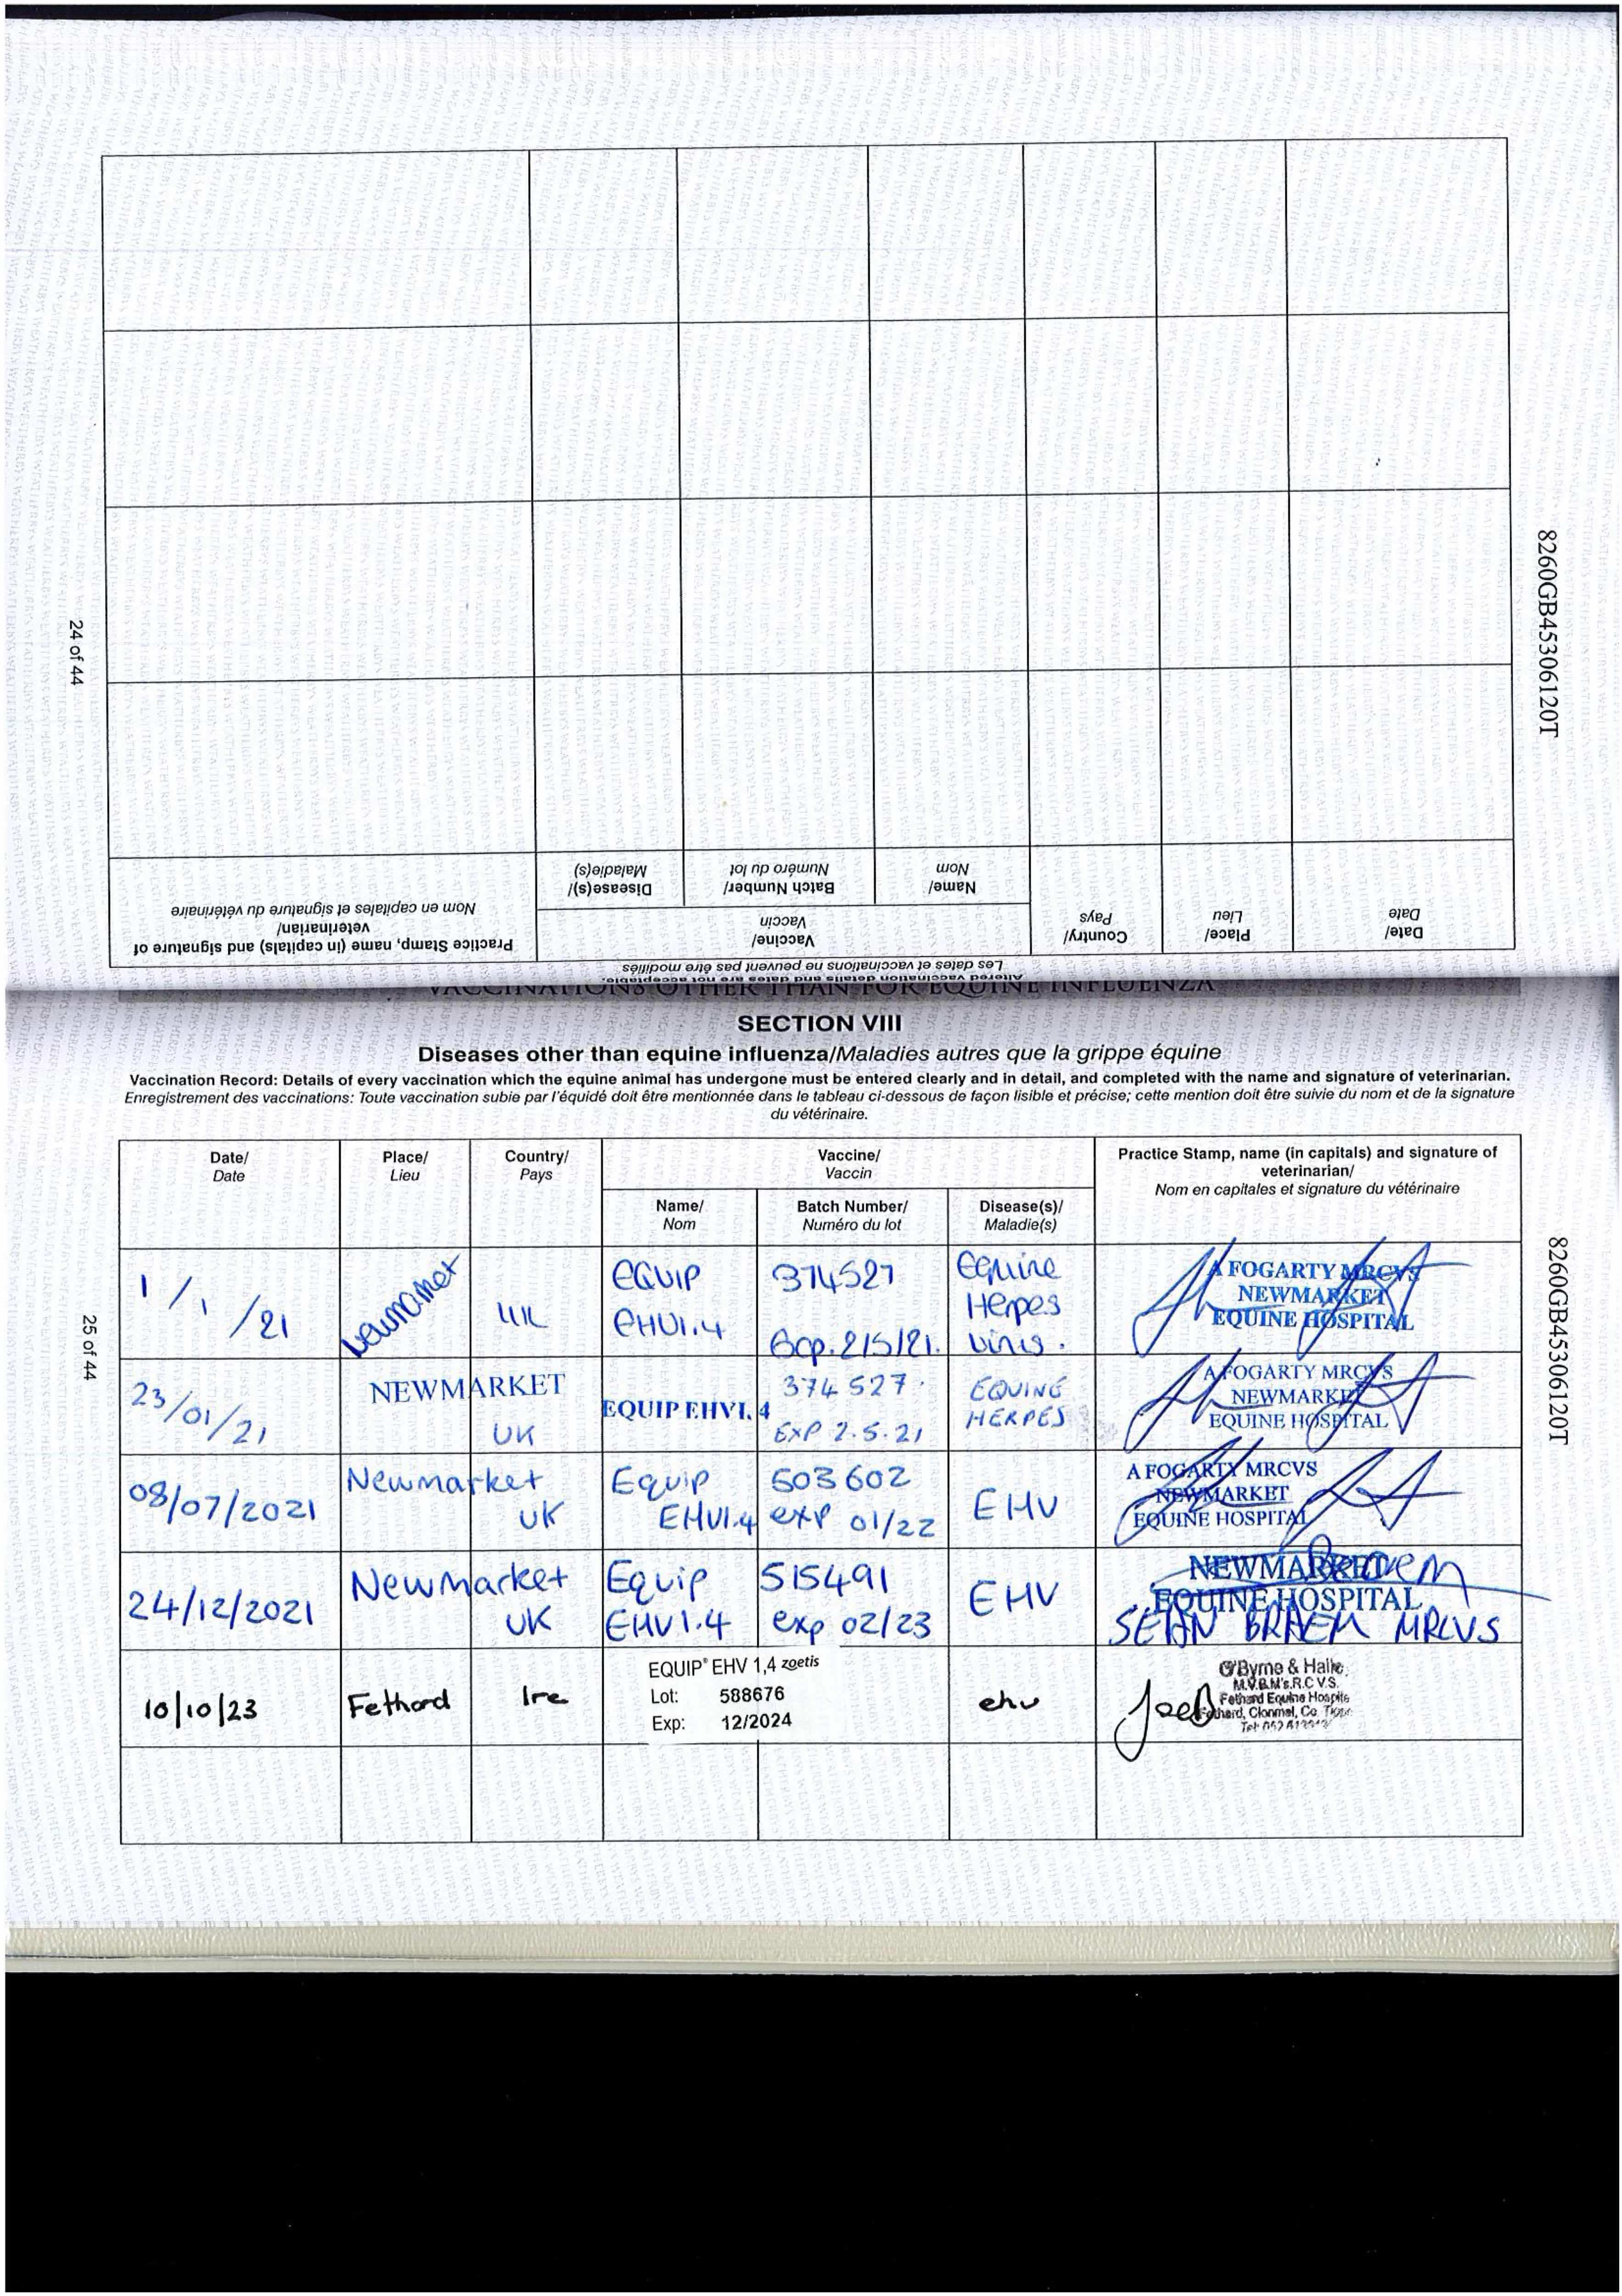 24 of 44
8260GB45306120T
Altered vaccination details and dates are not acceptable.
Les dates et vaccinations ne peuvent pas être modifiés
Date/
Date
Place/
Lieu
Country/
Pays
Vaccine/
Vaccin
Name/
Nom
Batch Number/
Numéro du lot
Disease(s)/
Maladie(s)
Practice Stamp, name (in capitals) and signature of
veterinarian/
Nom en capitales et signature du vétérinaire
VACCINATIONS OTHER THAN FOR EQUINE INFLUENZA
SECTION VIII
Diseases other than equine influenza/Maladies autres que la grippe équine
Vaccination Record: Details of every vaccination which the equine animal has undergone must be entered clearly and in detail, and completed with the name and signature of veterinarian.
Enregistrement des vaccinations: Toute vaccination subie par l'équidé doit être mentionnée dans le tableau ci-dessous de façon lisible et précise; cette mention doit être suivie du nom et de la signature
du vétérinaire.
Date/
Date
Place/
Lieu
Country/
Pays
Vaccine/
Vaccin
Name/
Nom
Batch Number/
Numéro du lot
Disease(s)/
Maladie(s)
Practice Stamp, name (in capitals) and signature of
veterinarian/
Nom en capitales et signature du vétérinaire
1/1/21
Newmarket
UK
EQUIP
EHV1.4
374527
Exp. 2/5/21.
Equine
Herpes
Virus.
A FOGARTY MRCVS
NEWMARKET
EQUINE HOSPITAL
23/01/21
NEWMARKET
UK
EQUIP EHV1.4
374527.
EXP 2.5.21
EQUINE
HERPES
A FOGARTY MRCVS
NEWMARKET
EQUINE HOSPITAL
08/07/2021
Newmarket
UK
Equip
EHV1.4
503602
exp 01/22
EHV
A FOGARTY MRCVS
NEWMARKET
EQUINE HOSPITAL
24/12/2021
Newmarket
UK
Equip
EHV1.4
515491
exp 02/23
EHV
NEWMARKET
EQUINE HOSPITAL
SEAN BRAEM MRCVS
10/10/23
Fethard
Ire
EQUIP® EHV 1,4 zoetis
Lot: 588676
Exp: 12/2024
ehv
O'Byrne &
M.V.B.M's.R.C.V.S.
Fethard Equine
Fethard, Clonmel, Co.
25 of 44
8260GB45306120T